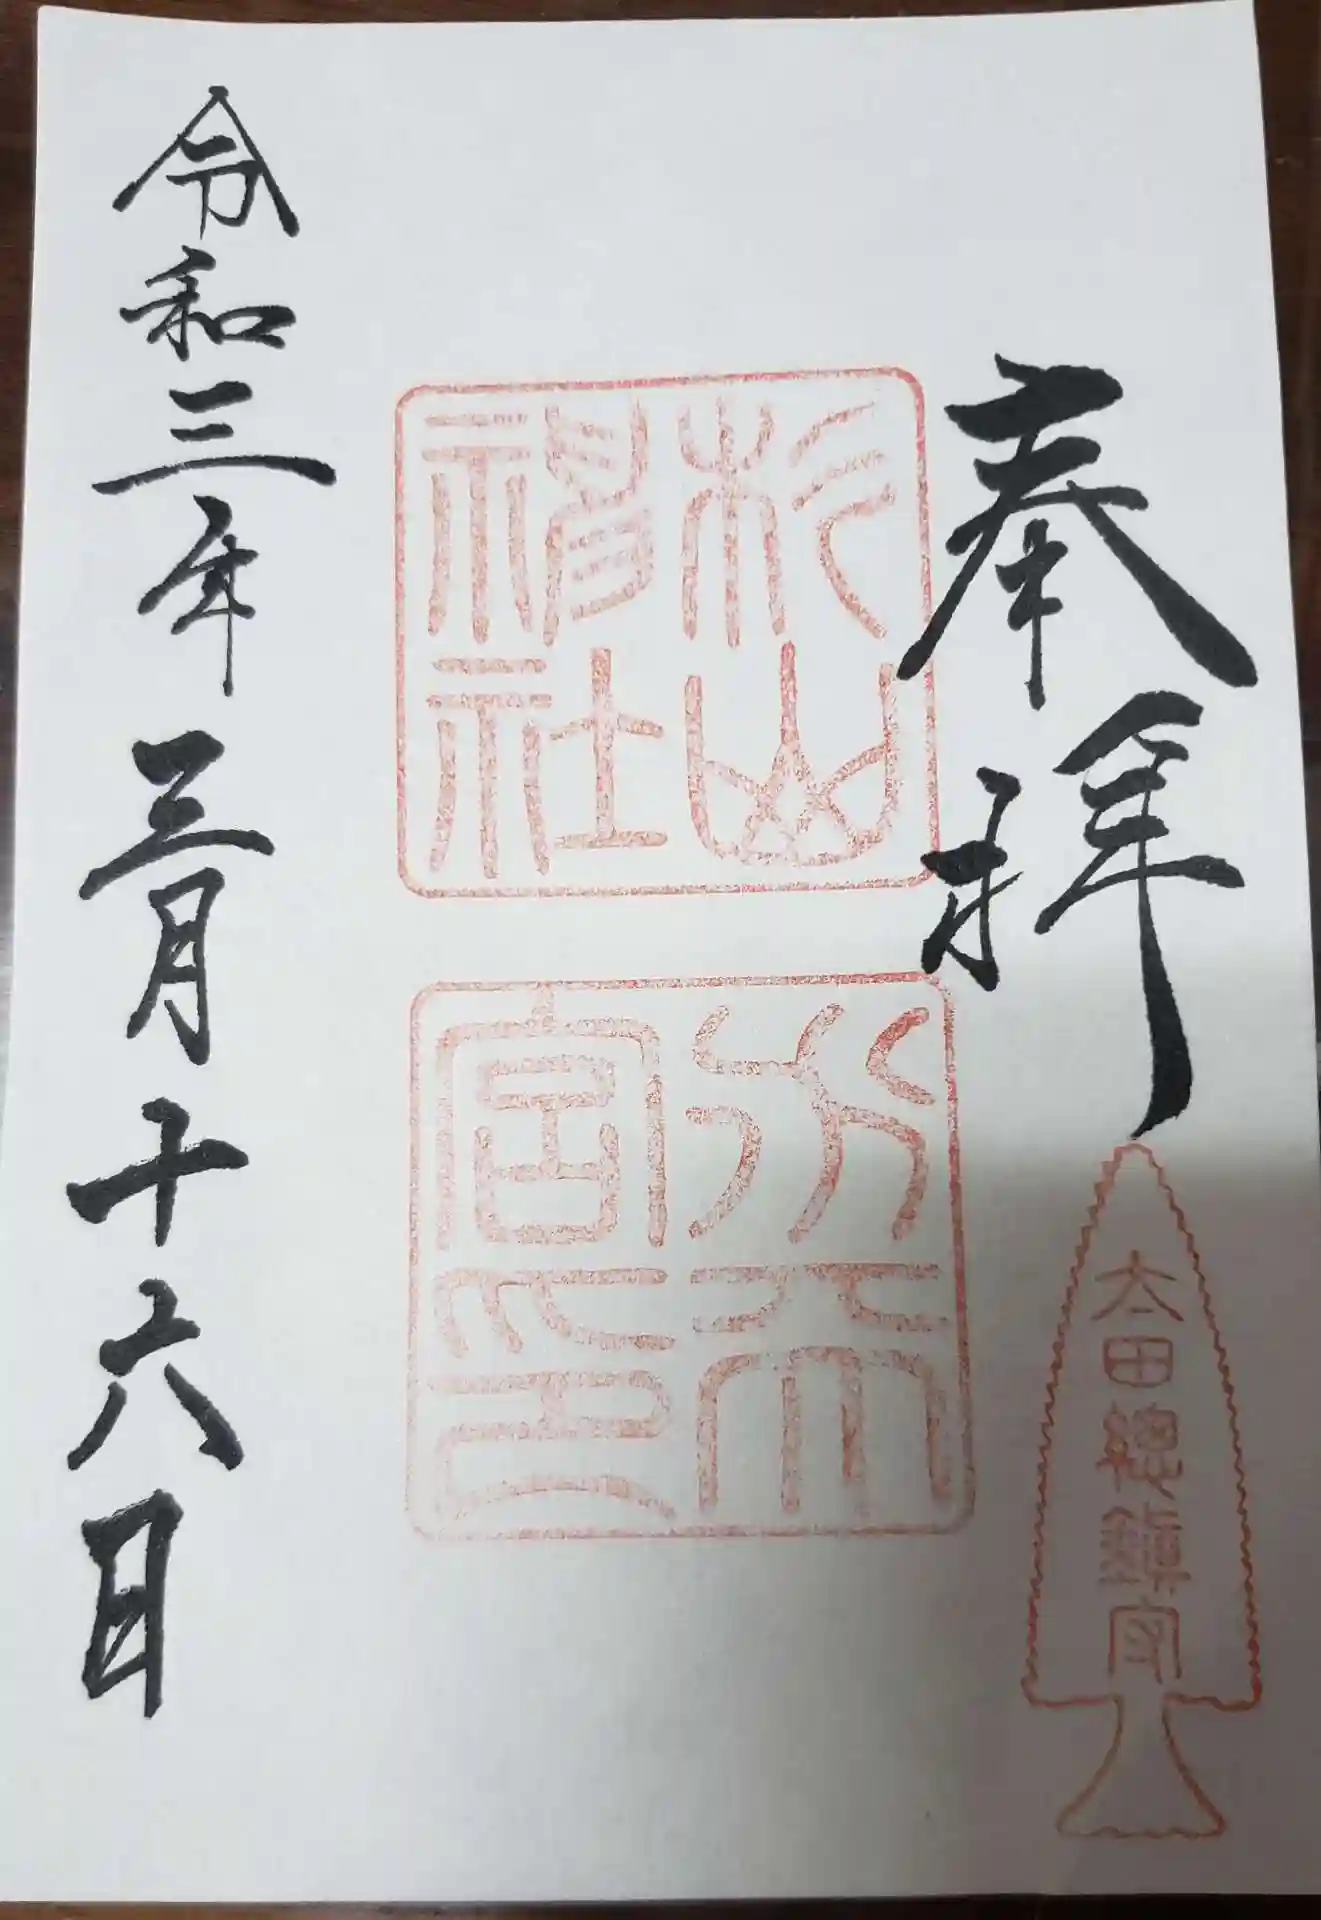 奉拝
太田總鎮守
杉山
神社
水天
宮印
令和三年三月十六日